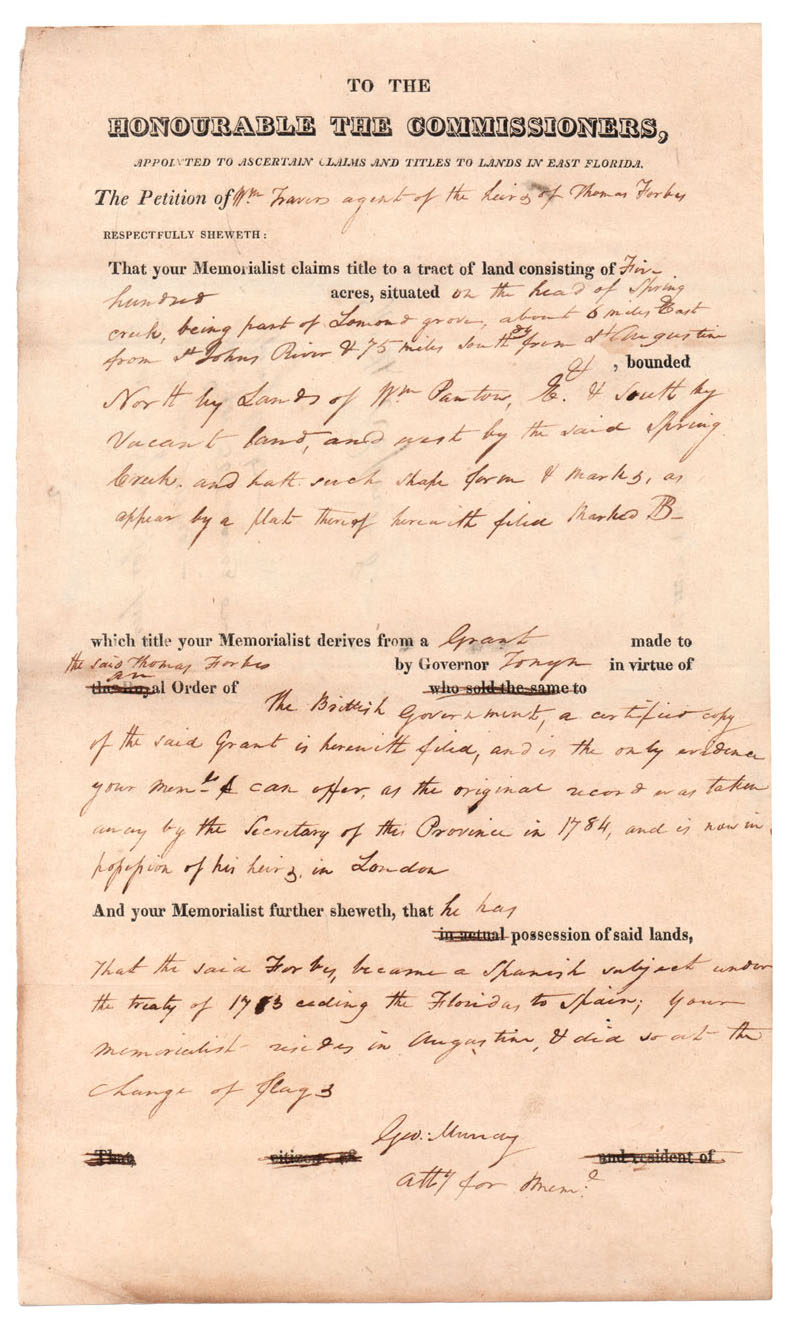 TO THE
HONOURABLE THE COMMISSIONERS,
APPOINTED TO ASCERTAIN CLAIMS AND TITLES TO LANDS IN EAST FLORIDA.
The Petition of Wm Travers agent of the heirs of Thomas Forbes
RESPECTFULLY SHEWETH:
That your Memorialist claims title to a tract of land consisting of Five
hundred acres, situated on the head of Spring
creek, being part of Lomond grove, about 6 miles East
from St Johns River & 75 miles South from St Augustine
& , bounded
North by Lands of Wm Panton, E. & South by
Vacant land, and west by the said Spring
Creek. and hath such shape form & marks, as
appear by a plat thereof herewith filed Marked B-
which title your Memorialist derives from a Grant made to
the said Thomas Forbes by Governor Tonyn in virtue of
an
this Royal Order of who sold the same to
the British Government, a certified copy
of the said Grant is herewith filed, and is the only evidence
your Meml. can offer, as the original record was taken
away by the Secretary of this Province in 1784, and is now in
possession of his heirs, in London
And your Memorialist further sheweth, that he has
in actual possession of said lands,
That the said Forbes, became a Spanish subject under
the treaty of 1783 ceding the Floridas to Spain; Your
memorialist resides in Augustine, & did so at the
change of flags
Geo: Murray
That citizen of and resident of
Atty for Meml.